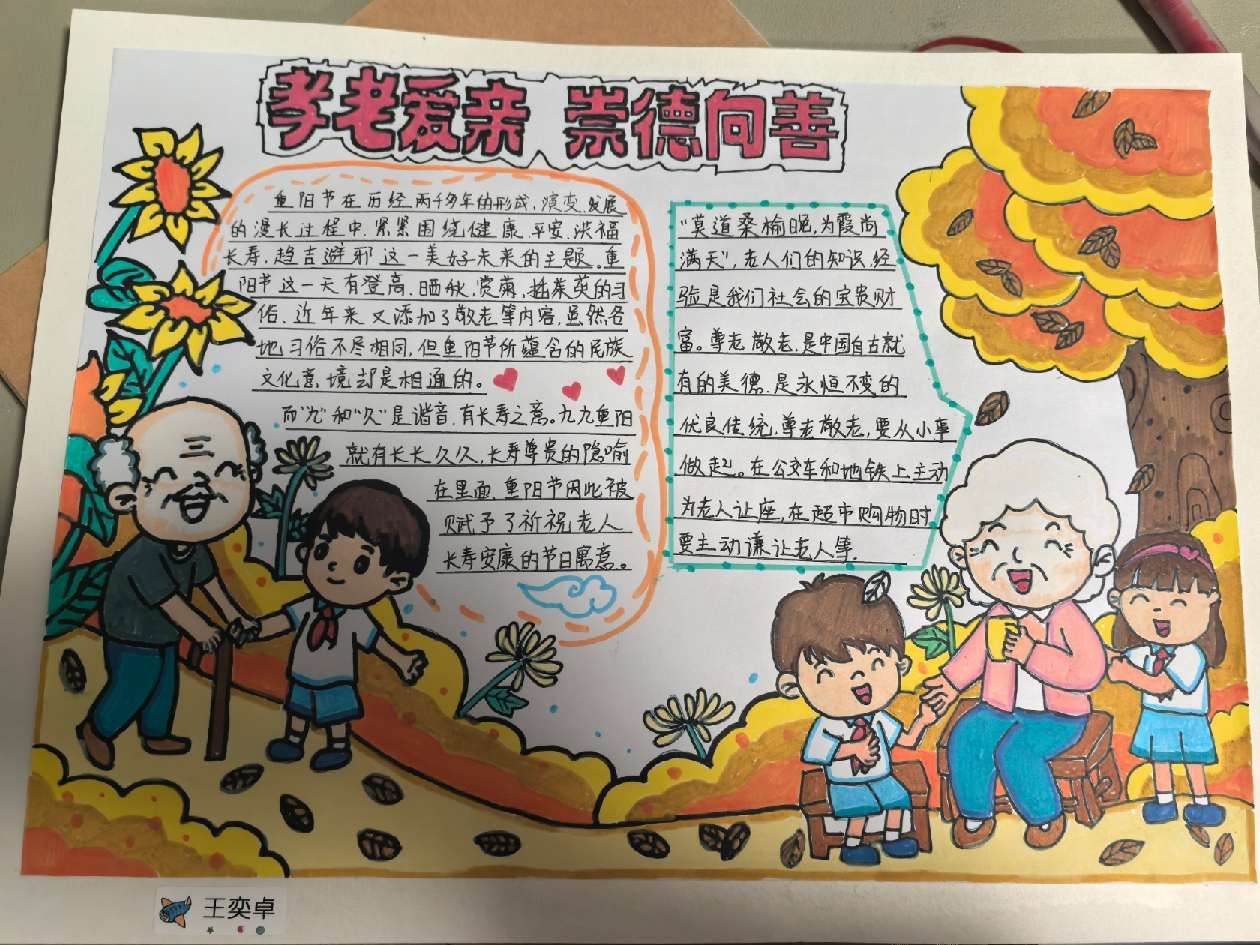 孝老爱亲 崇德向善
重阳节在历经两千多年的形成,演变,发展
的漫长过程中,紧紧围绕健康、平安、洪福
长寿,趋吉避邪这一美好未来的主题.重
阳节这一天有登高,晒秋,赏菊,插茱萸的习
俗.近年来又添加了敬老等内容,虽然各
地习俗不尽相同,但重阳节所蕴含的民族
文化意,境却是相通的。
而"九"和"久"是谐音.有长寿之意。九九重阳
就有长长久久,长寿尊贵的隐喻
在里面,重阳节因此被
赋予了祈祝老人
长寿安康的节日寓意。
"莫道桑榆晚,为霞尚
满天",老人们的知识,经
验是我们社会的宝贵财
富。尊老敬老.是中国自古就
有的美德.是永恒不变的
优良传统,尊老敬老,要从小事
做起。在公交车和地铁上主动
为老人让座,在超市购物时
要主动谦让老人等.
王奕卓